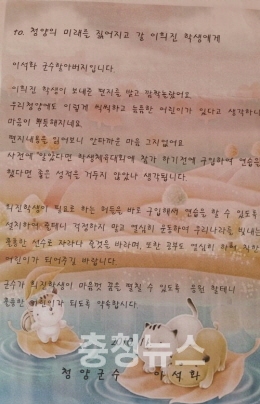 10. 청양의 미래를 짊어지고 갈 이휘진 학생에게
이석화 군수할아버지입니다.
이휘진 학생이 보내준 편지를 받고 깜짝놀랐어요.
우리청양에도 이렇게 씩씩하고 늠름한 어린이가 있다고 생각하니
마음이 뿌듯해지네요.
편지내용를 읽어보니 안타까운 마음 그지없어요.
사전에 알았다면 학생체육대회에 참가 하기전에 구입하여 연습은
했다면 좋은 성적을 거두지 않았나 생각됩니다.
휘진학생이 필요로 하는 허들은 바로 구입해서 연습은 할 수 있도록
설치하여 줄테니 걱정하지 말고 열심히 운동하여 우리나라를 빛내는
훌륭한 선수로 자라나 줄것을 바라며, 또한 공부도 열심히 하는 착한
어린이가 되어주길 바랍니다.
군수가 휘진학생이 마음껏 꿈을 펼칠 수 있도록 응원 할테니
훌륭한 어린이가 되도록 약속합시다.
충청뉴스
청양군수 이석화